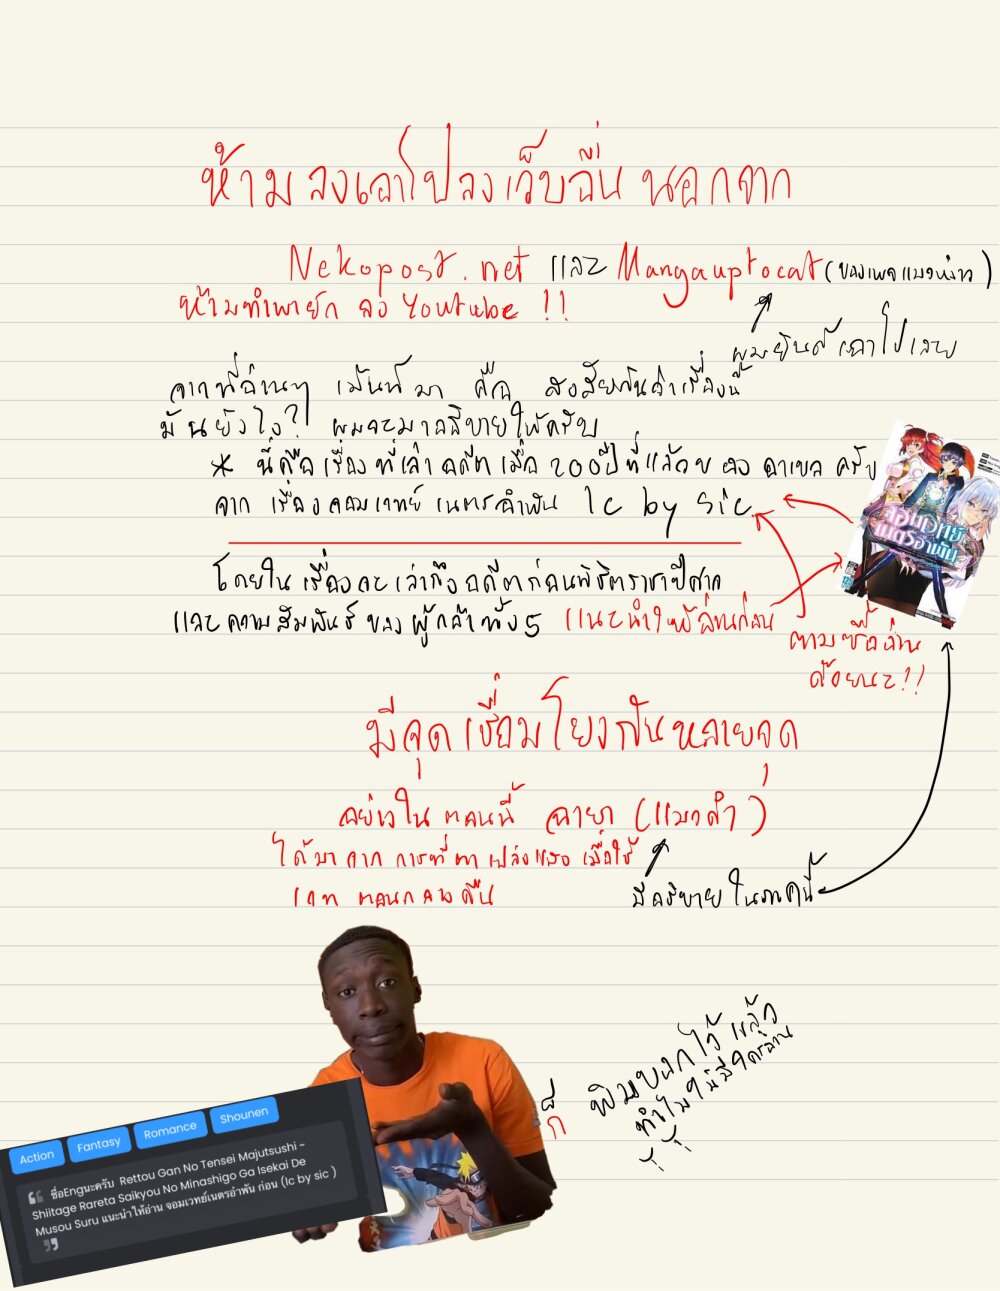 ห้ามลงเอาไปลงเว็บอื่นนอกจาก
Nekopost.net และ Mangauptocat (ของเพจแมวเหมียว)
ห้ามทำพากย์ ลง Youtube !!
ผมยินดีเอาไปเลย
จากที่อ่านๆ เม้นท์มา คือ สงสัยกันว่าเรื่องนี้
มันยังไง? ผมจะมาอธิบายให้ครับ
* นี่คือเรื่องที่เล่าอดีตเมื่อ 200ปีที่แล้วของอาเบล ครับ
จาก เรื่องจอมเวทย์เนตรอำพัน lc by sic
จอมเวทย์
เนตรอำพัน
โดยในเรื่องจะเล่าถึงอดีตก่อนพิชิตราชาปีศาจ
และความสัมพันธ์ของผู้กล้าทั้ง5 แนะนำให้อ่านก่อน
ตามซื้ออ่าน
ด้วยนะ!!
มีจุดเชื่อมโยงกันหลายจุด
อย่างใน ตอนนี้ ฉายา (แมวดำ)
ได้มาจาก การที่ตาเปล่งแสง เมื่อใช้
เวท ตอนกลางคืน
มีอธิบายในภาคนี้
ก็
พิมบอกไว้แล้ว
ทำไมไม่มีใครอ่าน
Action Fantasy Romance Shounen
ชื่อEngนะครับ Rettou Gan No Tensei Majutsushi ~
Shiitage Rareta Saikyou No Minashigo Ga Isekai De
Musou Suru แนะนำให้อ่าน จอมเวทย์เนตรอำพัน ก่อน (lc by sic )